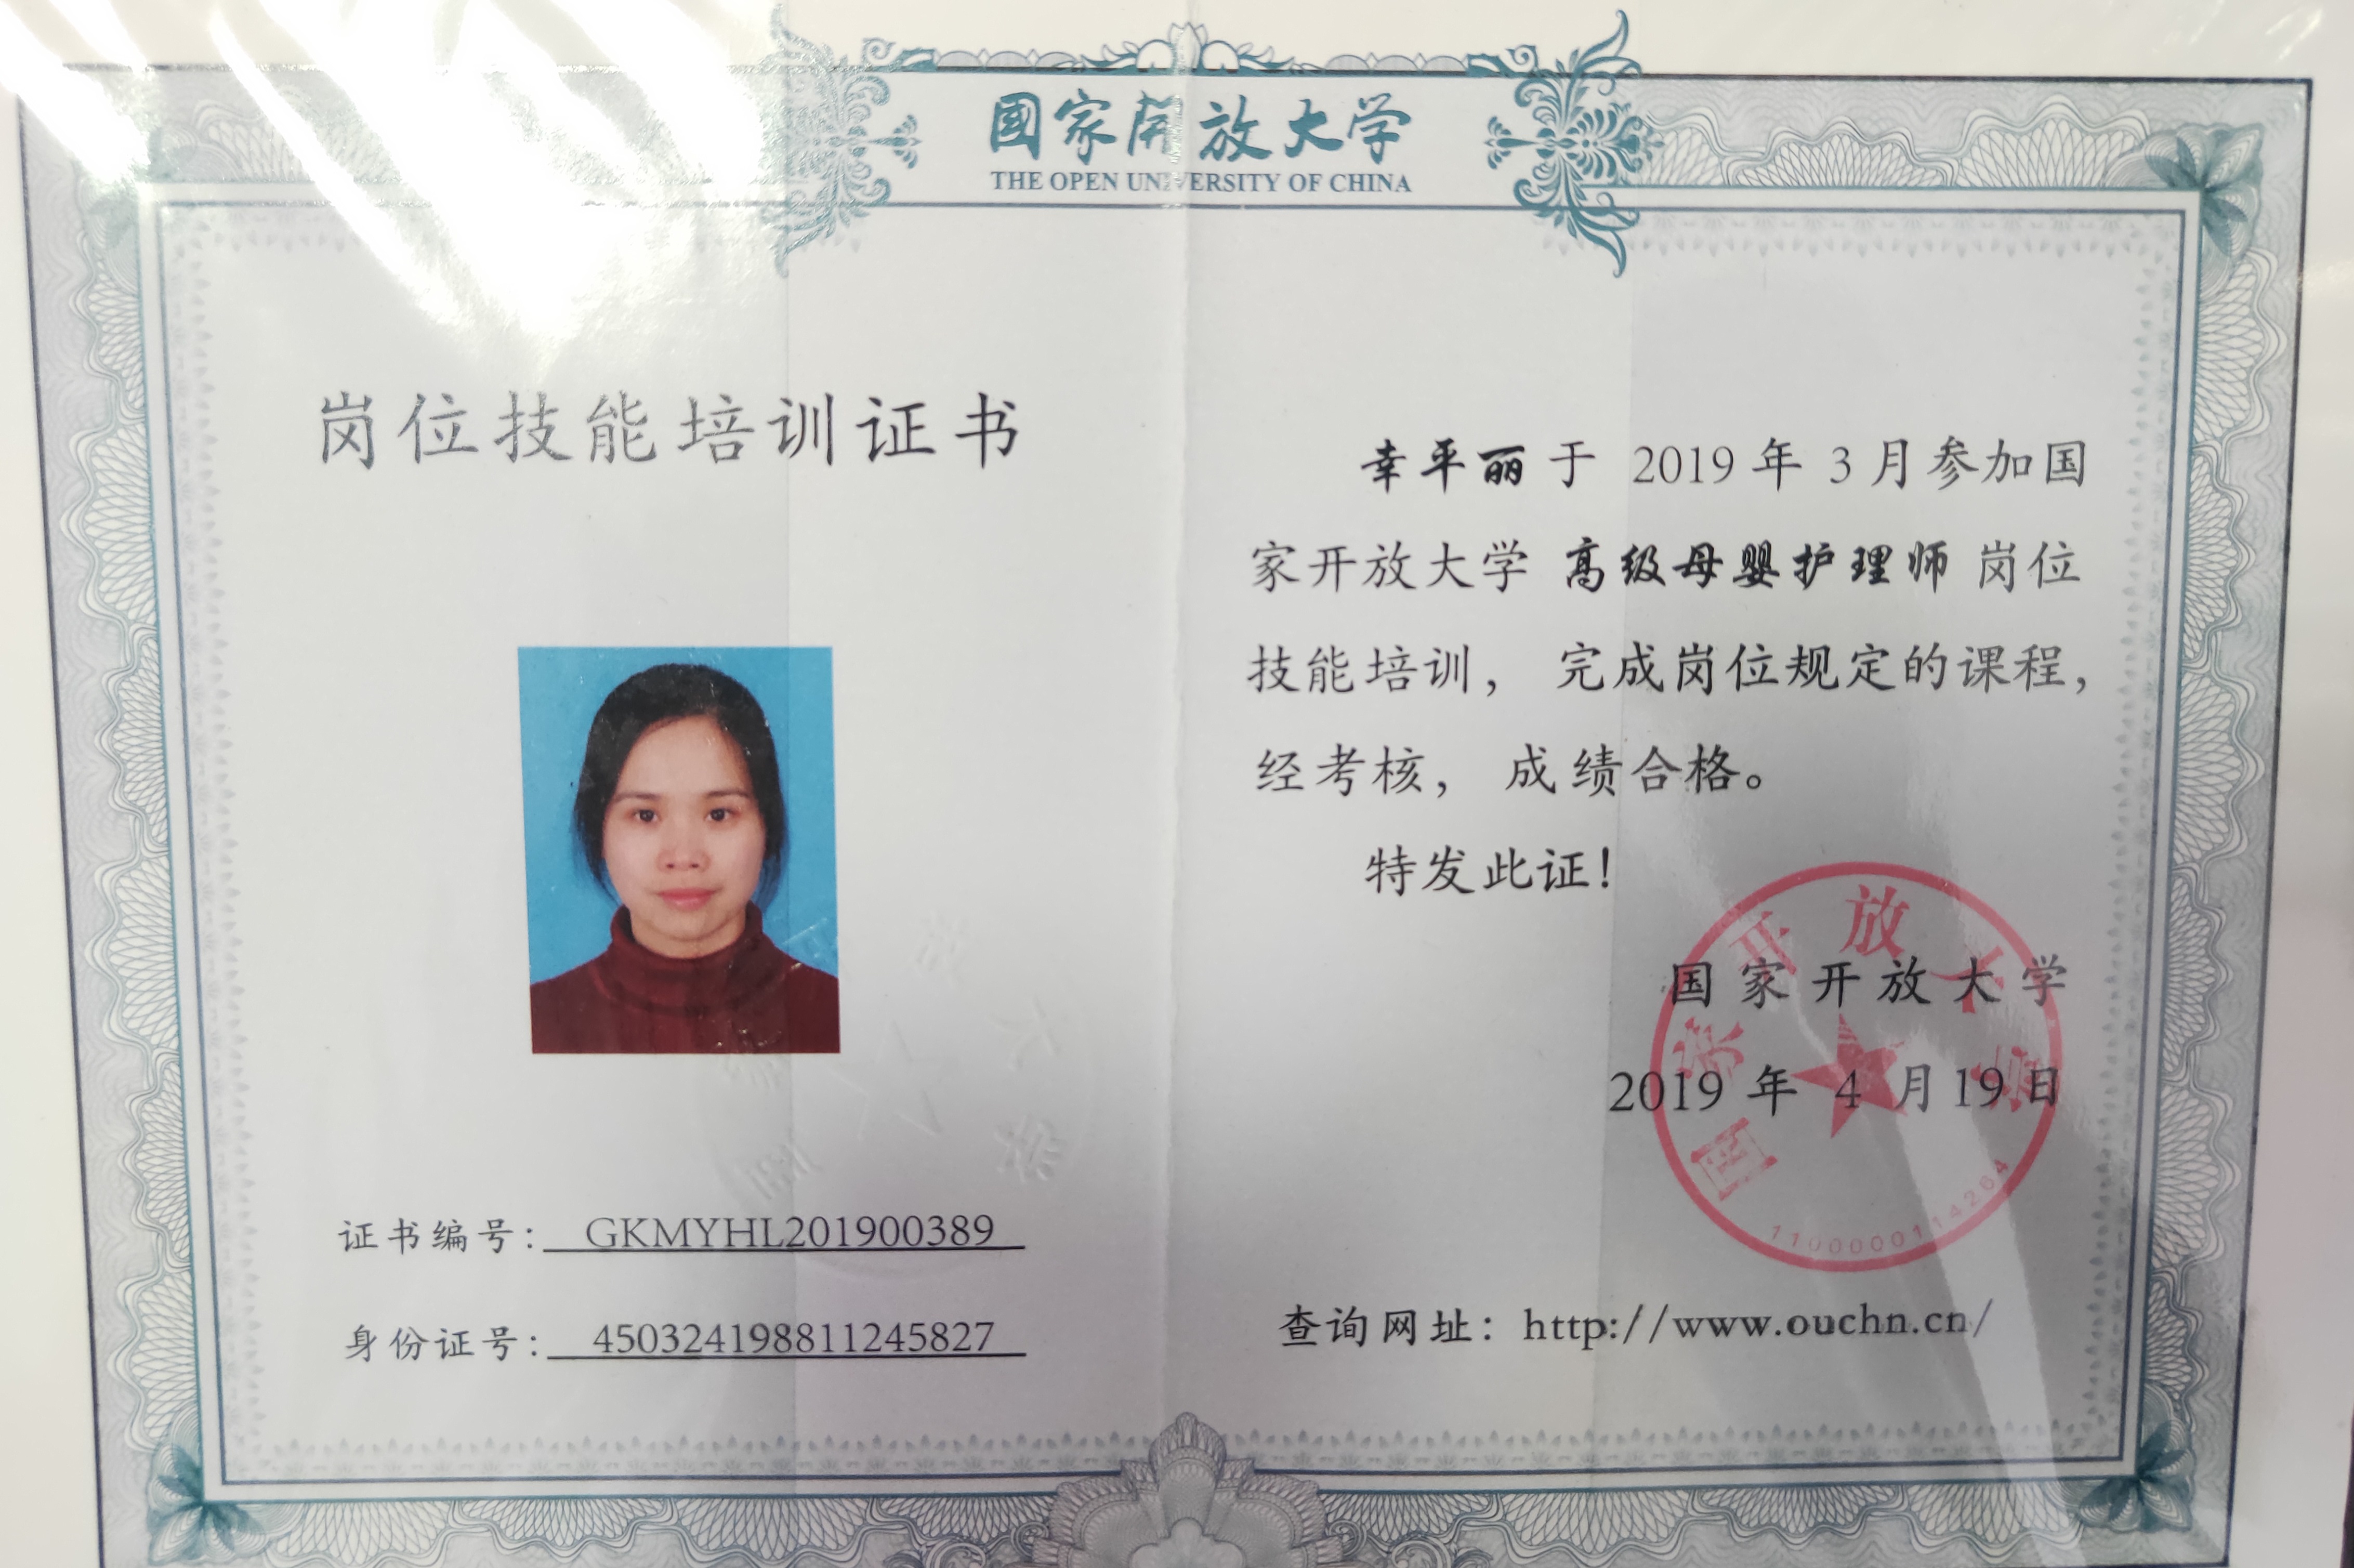 國家開放大学
THE OPEN UNIVERSITY OF CHINA
岗位技能培训证书
证书编号: GKMYHL201900389
身份证号: 450324198811245827
幸平丽于 2019 年 3 月参加国
家开放大学 高级母婴护理师 岗位
技能培训， 完成岗位规定的课程，
经考核， 成绩合格。
特发此证!
国家开放大学
2019 年 4 月 19 日
国家开放大学
1100000114264
查询网址: http://www.ouchn.cn/